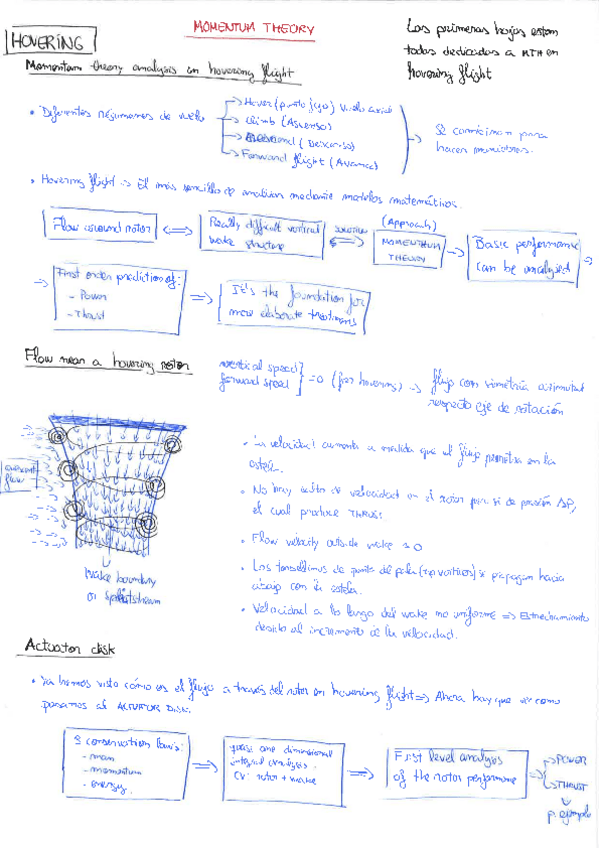 MOMENTUM THEORY
Las primeras hojas estan
todas dedicadas a MTH en
hovering flight
HOVERING
Momentum theory analysis in hovering flight
• Diferentes regimenes de vuelo
Hover (punto fijo) vuelo axial
Climb (Ascenso)
(Descenso)
Forward flight (Avance)
Se combinan para
hacer maniobras.
• Hovering flight -> El más sencillo de analizar mediante modelos matemáticos.
Flow around rotor
Really difficult vortical
wake structure
solution
(Approach)
MOMENTUM
THEORY
Basic performance
can be analysed
First order prediction of:
- Power
- Thrust
It's the foundation for
more elaborate treatments
Flow near a hovering rotor
vertical speed
forward speed
=0 (for hovering) -> flujo con simetría azimutal
respecto eje de rotación
quiescent
flow
wake boundary
or slipstream
• La velocidad aumenta a medida que el flujo penetra en la
estela.
• No hay salto de velocidad en el rotor pero si de presión ΔP,
el cual produce THRUST
• Flow velocity outside wake ≈ 0
• Los torbellinos de punta de pala (tip vortices) se propagan hacia
abajo con la estela.
• Velocidad a lo largo del wake no uniforme => Estrechamiento
debido al incremento de la velocidad.
Actuator disk
• Ya hemos visto cómo es el flujo a través del rotor en hovering flight => Ahora hay que ver como
pasamos al ACTUATOR DISK.
3 conservation laws:
- mass
- momentum
- energy.
quasi one dimensional
integral analysis.
CV: rotor + wake
First level analysis
of the rotor performance
POWER
THRUST
p. ejemplo